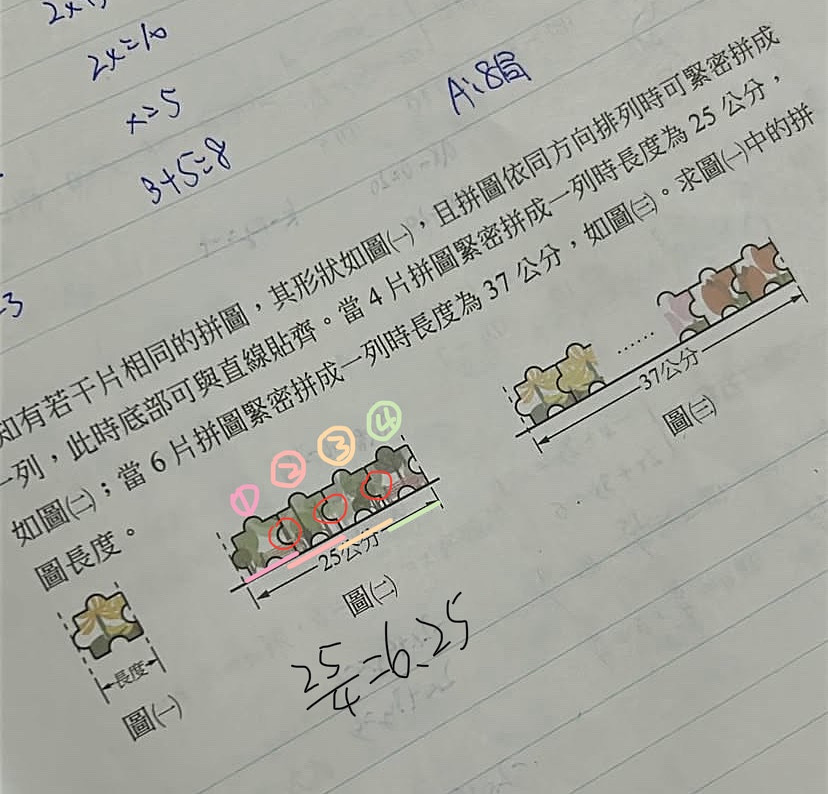 2x=10
x=5
3+5=8
A:8局
知有若干片相同的拼圖，其形狀如圖㈠，且拼圖依同方向排列時可緊密拼成
一列，此時底部可與直線貼齊。當 4 片拼圖緊密拼成一列時長度為 25 公分，
如圖㈡；當 6 片拼圖緊密拼成一列時長度為 37 公分，如圖㈢。求圖㈠中的拼
圖長度。
長度
圖㈠
① ② ③ ④
25公分
圖㈡
25/4=6.25
……
37公分
圖㈢